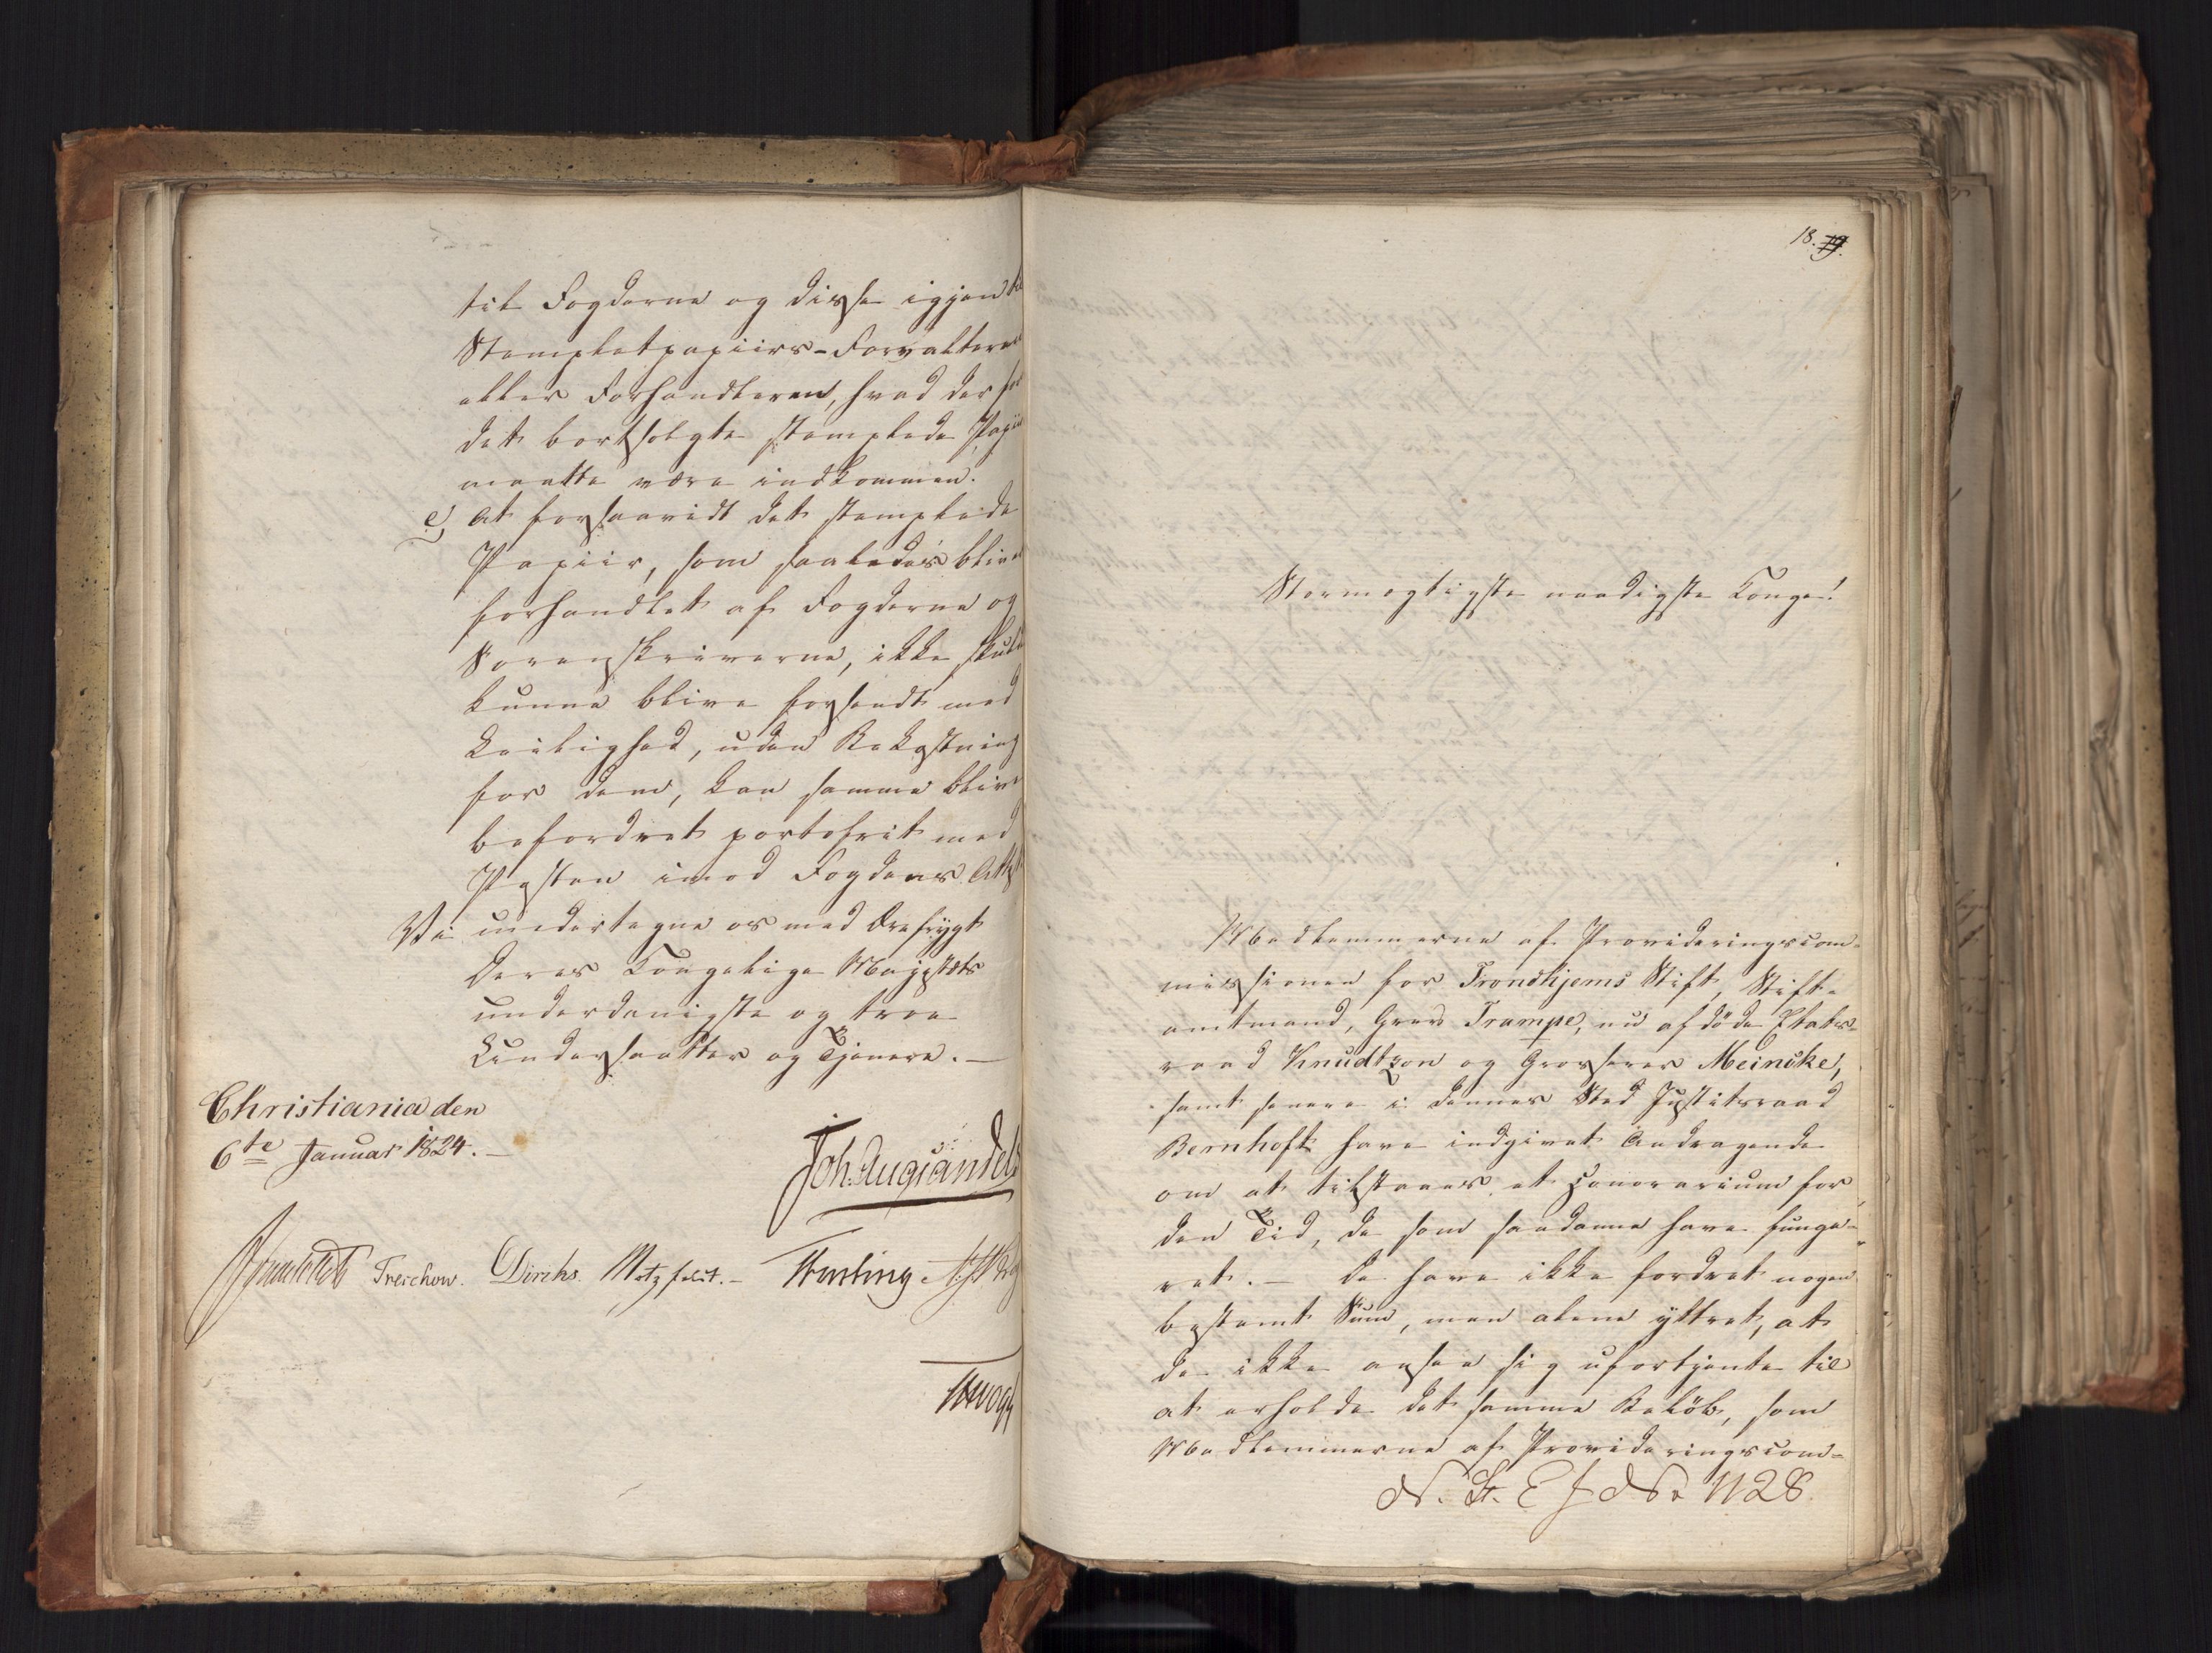 til Fogderne og disse igjen til
Stempletpapiirs-Forvalteren
eller Forhandleren, hvad der for
det bortsolgte stemplede Papiir
maatte være indkommen.
e, At forsaavidt det stemplede
Papiir, som saaledes bliver
forhandlet af Fogderne og
Sorenskriverne, ikke skulde
kunne blive forsendt med
Leilighed, uden Bekostning
for dem, kan samme blive
befordret portofrit med
Posten imod Fogdens Attest
Vi undertegne os med Ærefrygt
Deres Kongelige Majestæts
underdanigste og troe
Undersaatter og Tjenere. —
Christiania den
6te Januar 1824. —
Joh. Aug: Sandels
Sommerfeldt Treschow. Diriks. Motzfeldt. — Fasting
Vogt
18. 19.
Stormægtigste naadigste Konge!
Medlemmerne af Provideringscom-
missionen for Trondhjems Stift, Stift-
amtmand, Grev Trampe, nu afdöde Etats-
raad Knudtzon og Grosserer Meincke,
samt senere i dennes Sted Justitsraad
Bernhoft have indgivet Andragende
om at tilstaaes et Honorarium for
den Tid, de som saadanne have funge-
ret. — De have ikke fordret nogen
bestemt Sum, men alene yttret, at
de ikke ansee sig ufortjente til
at erholde det samme Belöb, som
Medlemmerne af Provideringscom-
N. St. E f No 1128.